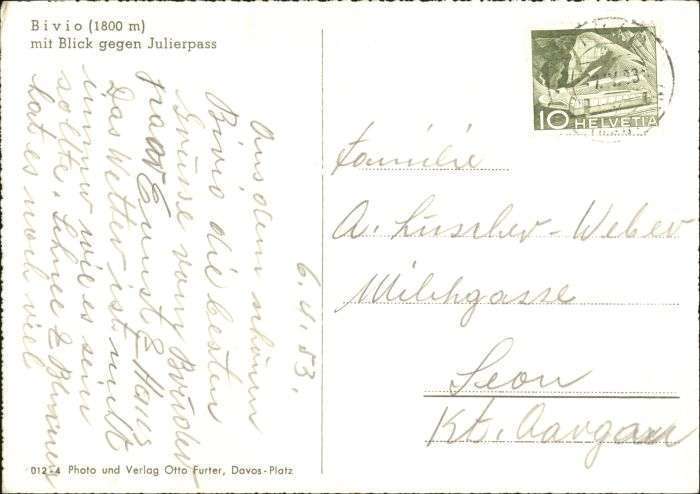 Bivio (1800 m)
mit Blick gegen Julierpass
6.4.53.
Aus dem schönen
Bivio die besten
Grüsse vom Brüder-
paar Ernst & Hans
Das Wetter ist nicht
immer wie es sein
sollte. Schnee & Blumen
hat es noch viel
10 HELVETIA
Familie
A. Lüscher-Weber
Milchgasse
Seon
Kt. Aargau
012-4 Photo und Verlag Otto Furter, Davos-Platz